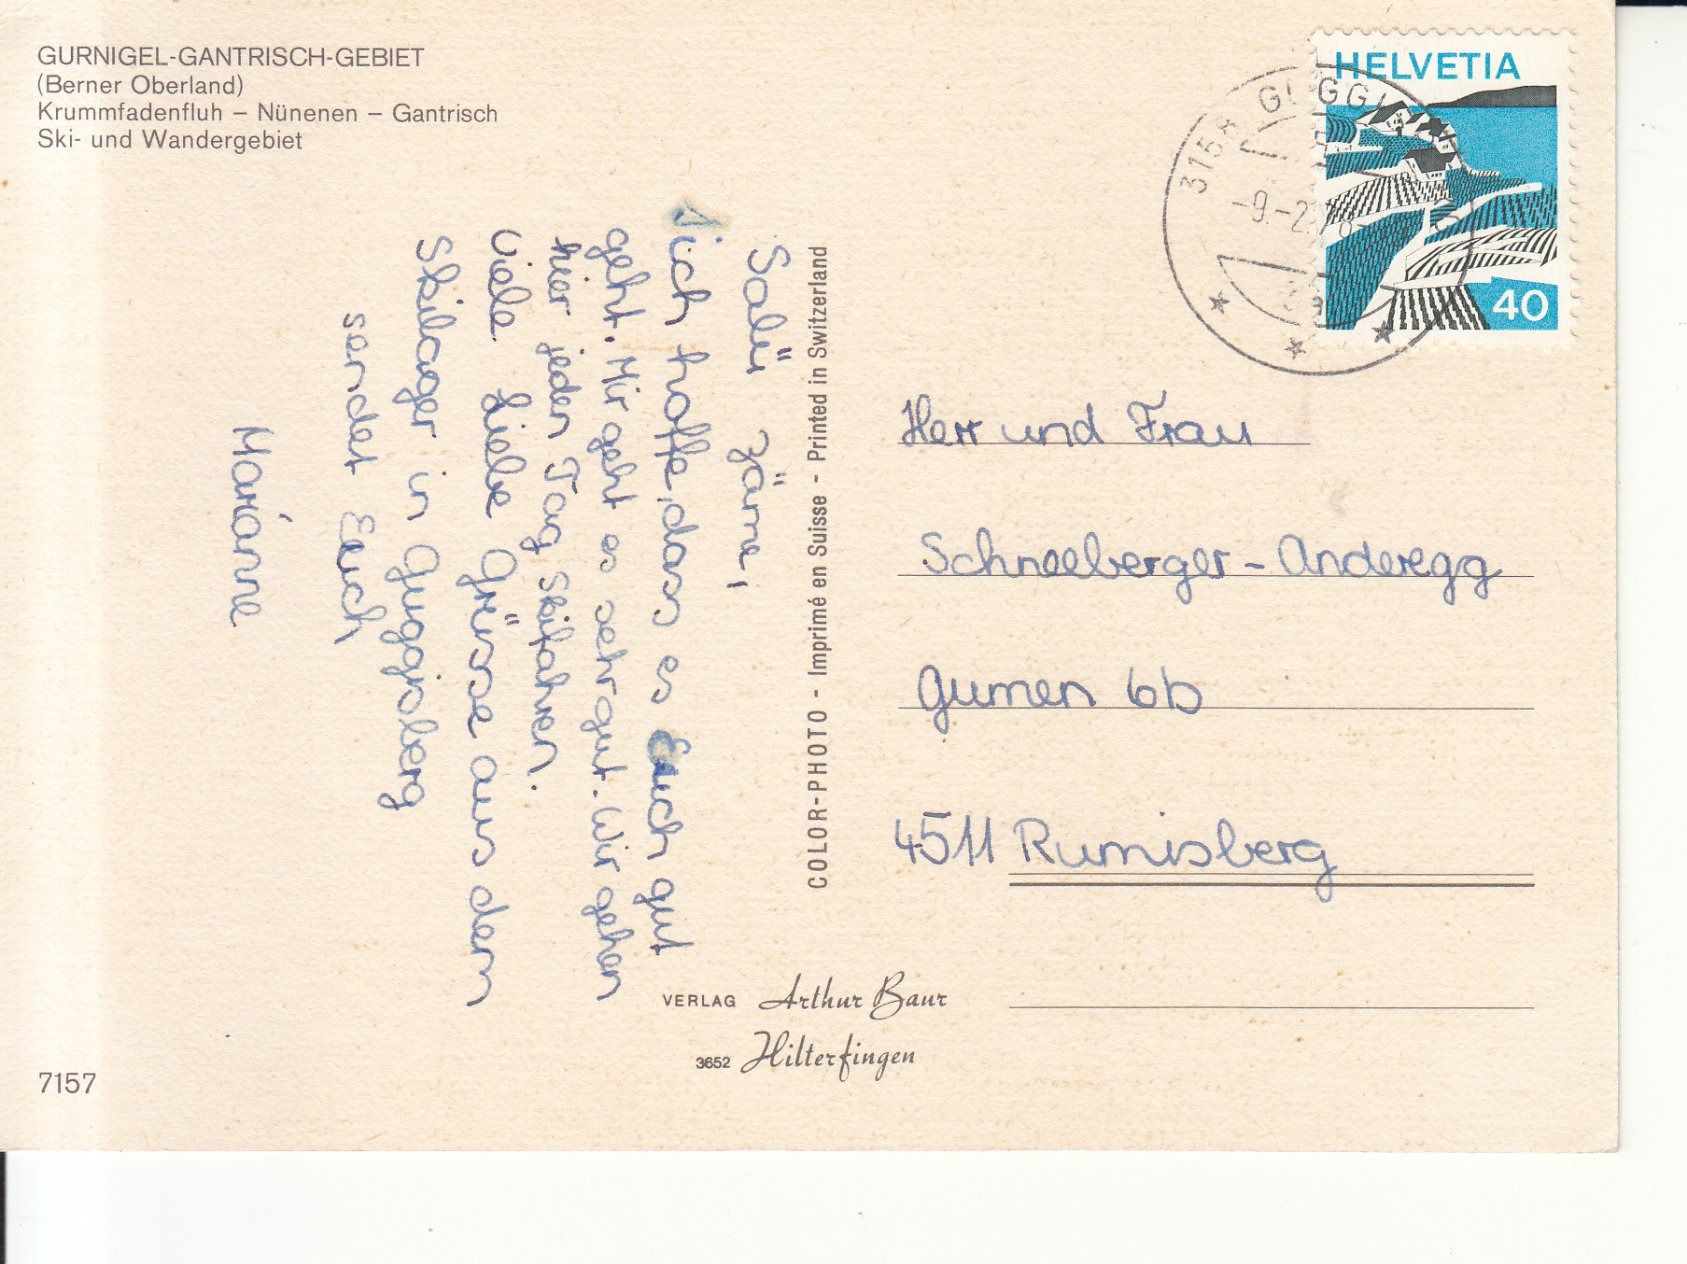 GURNIGEL-GANTRISCH-GEBIET
(Berner Oberland)
Krummfadenfluh – Nünenen – Gantrisch
Ski- und Wandergebiet
HELVETIA
40
-9.-2.78
Salü zäme,
ich hoffe, dass es Euch gut
geht. Mir geht es sehr gut. Wir gehen
hier jeden Tag skifahren.
Viele liebe Grüsse aus dem
Skilager in Guggisberg
sendet Euch
Marianne
COLOR-PHOTO - Imprimé en Suisse - Printed in Switzerland
Herr und Frau
Schneeberger-Anderegg
Gumen 6b
4511 Rumisberg
VERLAG Arthur Baur
3652 Hilterfingen
7157